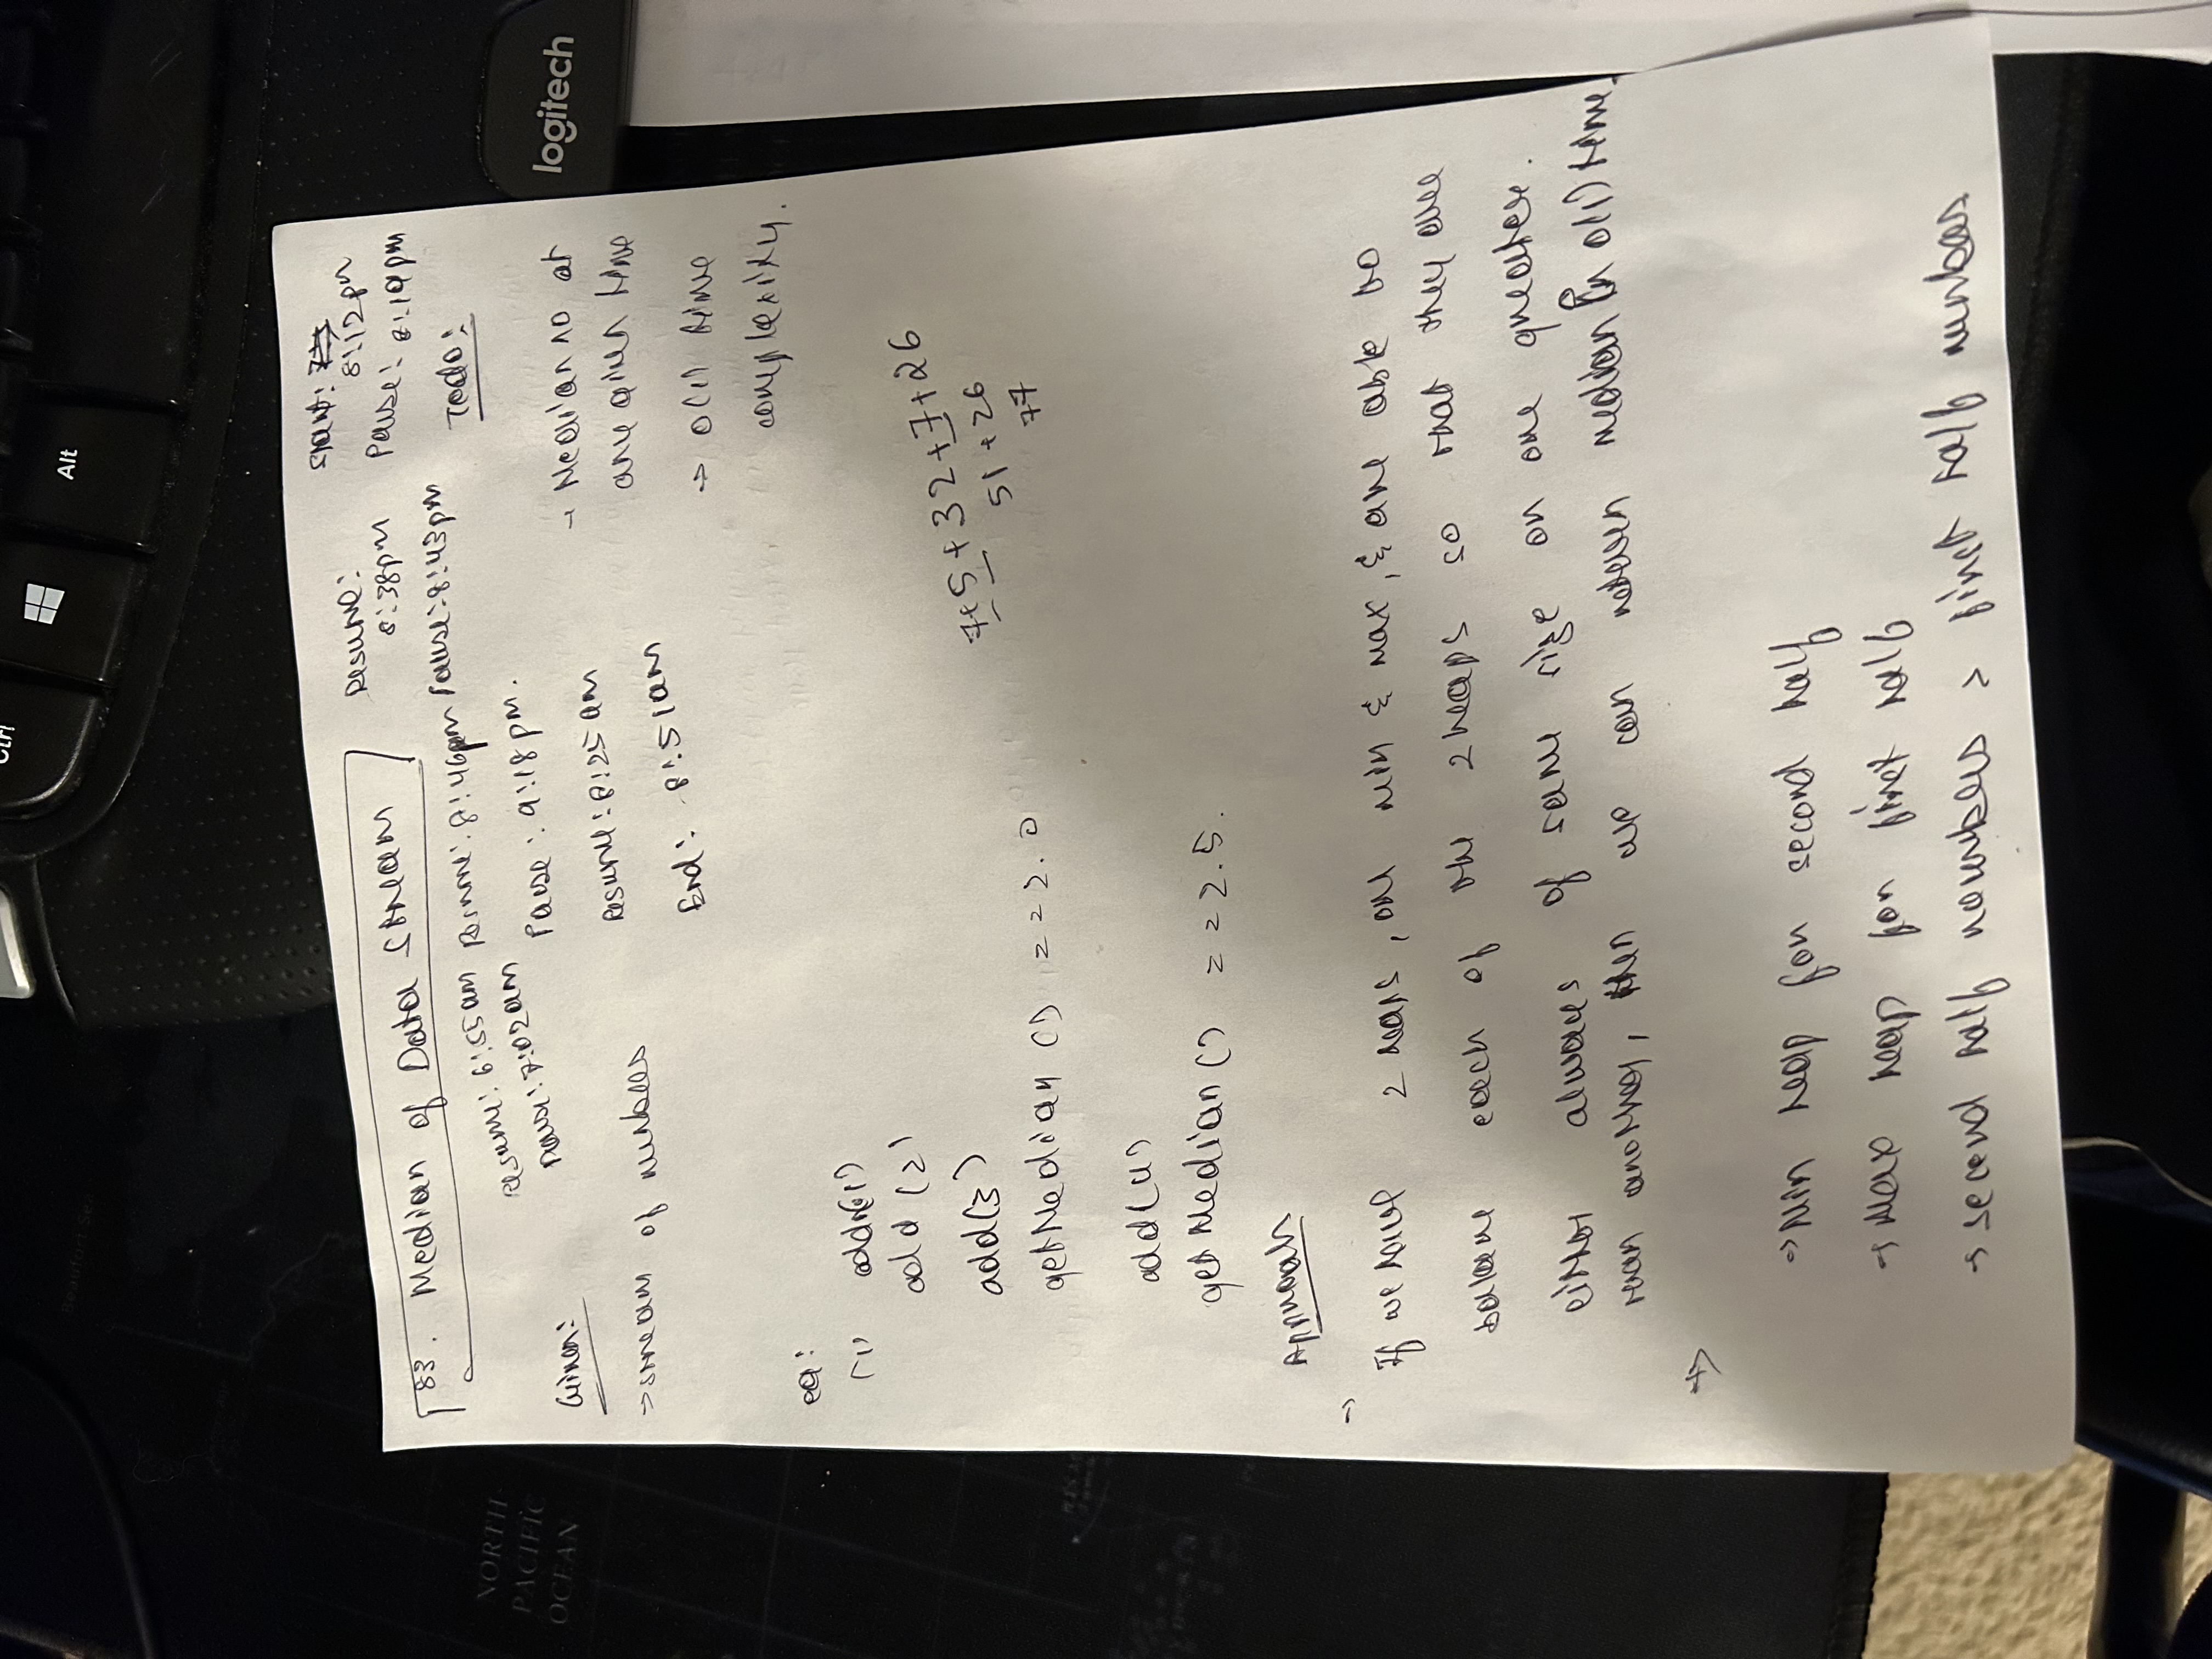 Ctrl
Alt
Beaufort Sea
NORTH
PACIFIC
OCEAN
logitech
83. Median of Data Stream
Resume:
8:38pm
Start:
8:12pm
Pause: 8:19pm
Resume: 6:55am Resume: 8:46pm Pause: 8:43pm
Pause: 7:02am
Pause: 9:18pm.
Resume: 8:25am
End: 8:51am
Todo:
→ Median no at
any given time
→ O(1) time
complexity.
Given:
→ stream of numbers
eg:
(1) add(1)
add(2)
add(3)
getMedian() == 2.0
add(4)
getMedian() == 2.5.
7+5+32+7+26
51+26
77
Approach
→
If we have 2 heaps, one min & max, & are able to
balance each of the 2 heaps so that they are
either always of same size or one greater
than another, then we can return median in O(1) time.
→
→ Min heap for second half
→ Max heap for first half
→ second half numbers > first half numbers